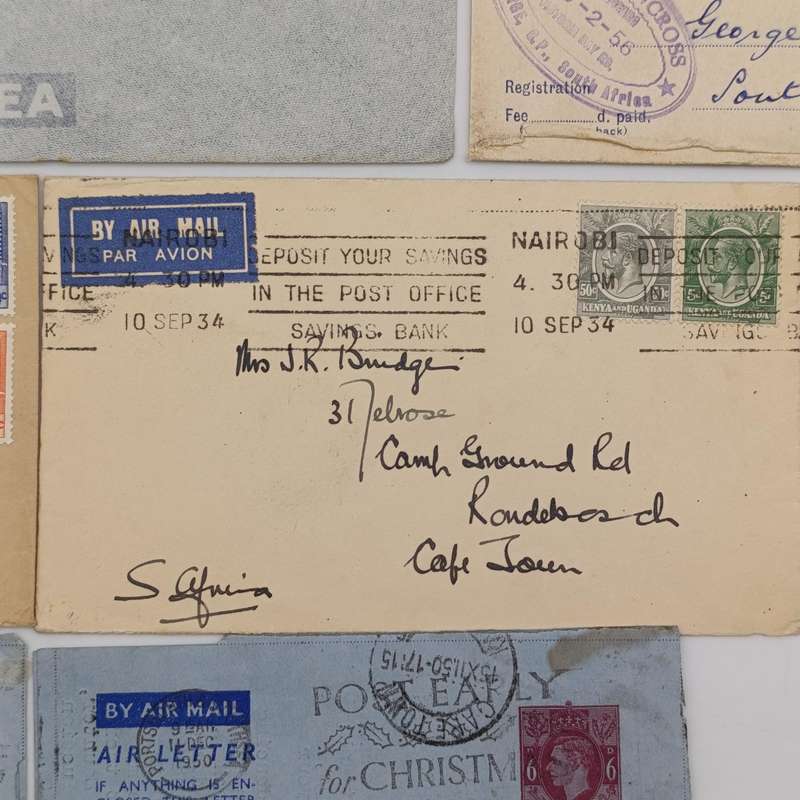 EA
CROSS
-2-56
G.P., South Africa
George
Registration
Sout
Fee d. paid.
back)
BY AIR MAIL
PAR AVION
NAIROBI
4. 30 PM
10 SEP 34
DEPOSIT YOUR SAVINGS
IN THE POST OFFICE
SAVINGS BANK
NAIROBI
4. 30 PM
10 SEP 34
DEPOSIT YOUR
IN THE POST
SAVINGS BA
VINGS
FFICE
K
50c
KENYA AND UGANDA
5c 5c
KENYA AND UGANDA
Mrs J.R. Bridge
31 Melrose
Camp Ground Rd
Rondebosch
Cape Town
S Africa
BY AIR MAIL
AIR LETTER
IF ANYTHING IS EN-
CLOSED THIS LETTER
PORTS
9 15 AM
11 DEC
1950
POST EARLY
for CHRISTM
15 XII.50-17:15
CAPE TOWN
6 D 6